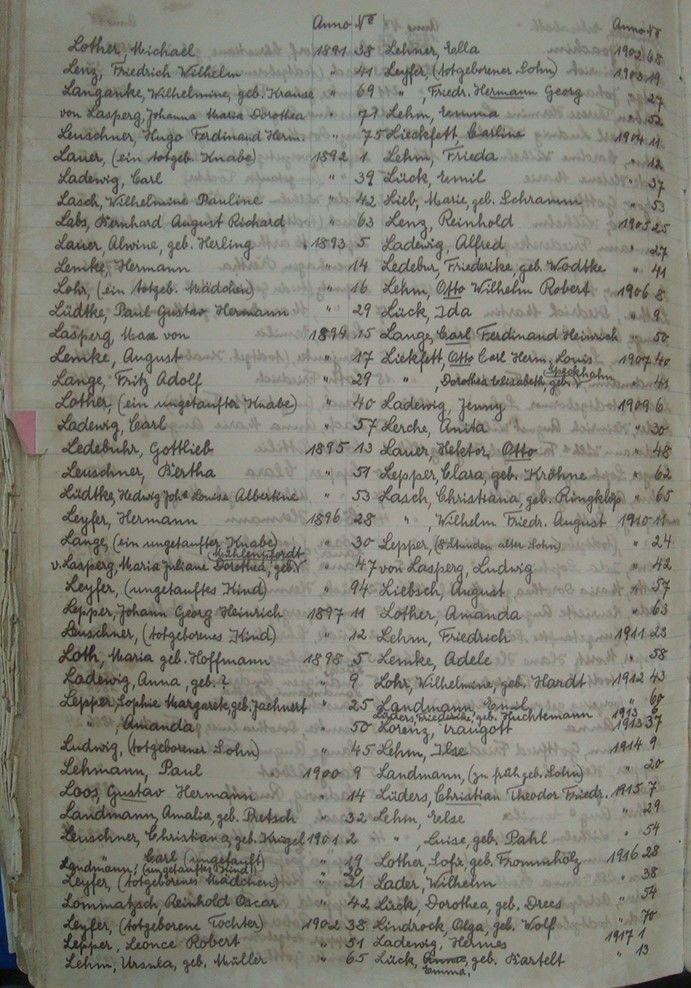 Anno No
Lother, Michael 1891 38
Lenz, Friedrich Wilhelm " 41
Langanke, Wilhelmine, geb. Krause " 69
von Lasperg, Johanna Maria Dorothea " 71
Leuschner, Hugo Ferdinand Herm. " 75
Lauer, (ein totgeb. Knabe) 1892 1
Ladewig, Carl " 39
Lasch, Wilhelmine Pauline " 42
Labs, Bernhard August Richard " 63
Lauer Alwine, geb. Herling 1893 5
Lemke, Hermann " 14
Lohr, (ein totgeb. Mädchen) " 16
Lüdtke, Paul Gustav Hermann " 29
Lasperg, Max von 1894 15
Lemke, August " 17
Lange, Fritz Adolf " 29
Lother, (ein ungetaufter Knabe) " 40
Ladewig, Carl " 57
Ledebuhr, Gottlieb 1895 13
Leuschner, Bertha " 51
Lüdtke, Hedwig Joh. Louise Albertine " 53
Leyfer, Hermann 1896 28
Lange, (ein ungetaufter Knabe) " 30
v. Lasperg, Maria Juliane Dorothea, geb. Mühlenpfordt " 47
Leyfer, (ungetauftes Kind) " 94
Lepper, Johann Georg Heinrich 1897 11
Leuschner, (totgeborenes Kind) " 12
Loth, Maria geb. Hoffmann 1898 5
Ladewig, Anna, geb. ? " 9
Lepper, Sophie Margarete, geb. Jaehnert " 25
" , Amanda " 50
Ludwig, (totgeborener Sohn) " 45
Lehmann, Paul 1900 9
Loos, Gustav Hermann " 14
Landmann, Amalia, geb. Pretsch " 32
Leuschner, Christiana, geb. Krügel 1901 2
" Carl (ungetauft) " 19
Landmann, (ungetauftes Kind) " 20
Leyfer, (totgeborenes Mädchen) " 21
Lommatzsch, Reinhold Oscar " 42
Leyfer, (totgeborene Tochter) 1902 38
Lepper, Leonce Robert " 51
Lehm, Ursula, geb. Müller " 65
Anno No
Lehner, Ella 1902 68
Leyfer, (totgeborener Sohn) 1903 19
" , Friedr. Hermann Georg " 27
Lehm, Emma " 52
Lieckfett, Carline 1904 11
Lehm, Frieda " 12
Lück, Emil " 37
Lieb, Marie, geb. Schramm " 53
Lenz, Reinhold 1905 25
Ladewig, Alfred " 27
Ledebur, Friederike, geb. Wodtke " 41
Lehm, Otto Wilhelm Robert 1906 8
Lück, Ida " 9
Lange, Carl Ferdinand Heinrich " 50
Lieckfett, Otto Carl Herm. Louis 1907 40
" Dorothea Elisabeth, geb. Speckhahn " 41
Ladewig, Jenny 1909 6
Lerche, Anita " 30
Lauer, Hektor, Otto " 48
Lepper, Clara, geb. Kröhne " 62
Lasch, Christiana, geb. Ringklop " 65
" , Wilhelm Friedr. August 1910 11
Lepper, (8 Stunden alter Sohn) " 24
von Lasperg, Ludwig " 42
Liebsch, August " 57
Lother, Amanda " 63
Lehm, Friedrich 1911 23
Lemke, Adele " 58
Lohr, Wilhelmine, geb. Hardt 1912 43
Landmann, Emil " 60
Lüders, Friederike, geb. Huchtemann 1913 6
Lorenz, Traugott 1913 37
Lehm, Ilse 1914 9
Landmann, (zu früh geb. Sohn) " 20
Lüders, Christian Theodor Friedr. 1915 7
Lehm, Else " 29
" , Luise, geb. Pahl " 54
Lother, Sofia, geb. Frommholz 1916 28
Lader, Wilhelm " 38
Lück, Dorothea, geb. Drees " 54
Lindrock, Olga, geb. Wolf " 70
Ladewig, Hannes 1917 1
Lück, Emma, geb. Bartelt " 13